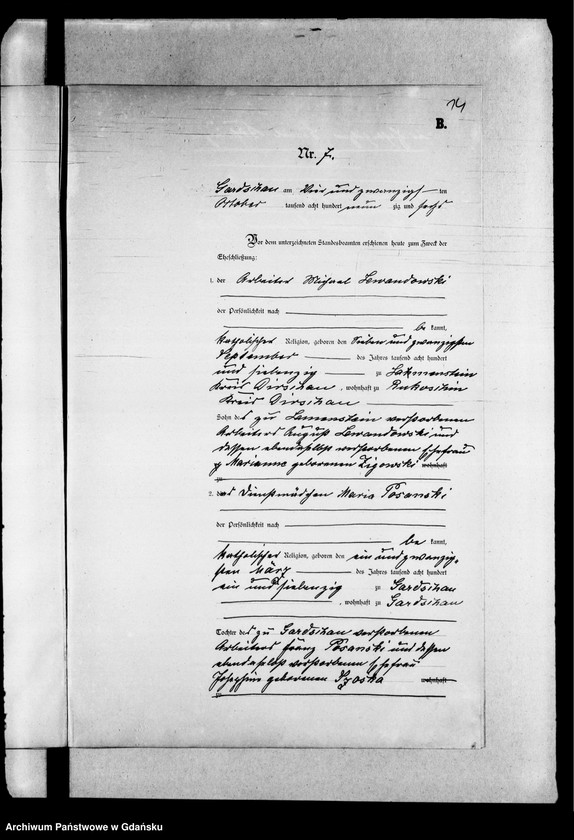 14
B.
Nr. 7.
Gardschau am Vier und zwanzigsten
Oktober tausend acht hundert neun zig und sechs
Vor dem unterzeichneten Standesbeamten erschienen heute zum Zweck der
Eheschließung:
1. der Arbeiter Michael Lewandowski
der Persönlichkeit nach
be kannt,
katholischer Religion, geboren den Sieben und zwanzigsten
September des Jahres tausend acht hundert
und siebenzig zu
Kreis Dirschau, wohnhaft zu Rukoschin
Kreis Dirschau
Sohn des zu verstorbenen
Arbeiters August Lewandowski und
dessen ebendaselbst verstorbenen Ehefrau
Marianna geborenen Zigowski wohnhaft
zu
2. das Dienstmädchen Maria Posanski
der Persönlichkeit nach
be kannt,
katholischer Religion, geboren den ein und zwanzig-
sten März des Jahres tausend acht hundert
ein und siebenzig zu Gardschau
, wohnhaft zu Gardschau
Tochter des zu Gardschau verstorbenen
Arbeiters Franz Posanski und dessen
ebendaselbst verstorbenen Ehefrau
Josephine geborenen wohnhaft
zu
Archiwum Państwowe w Gdańsku